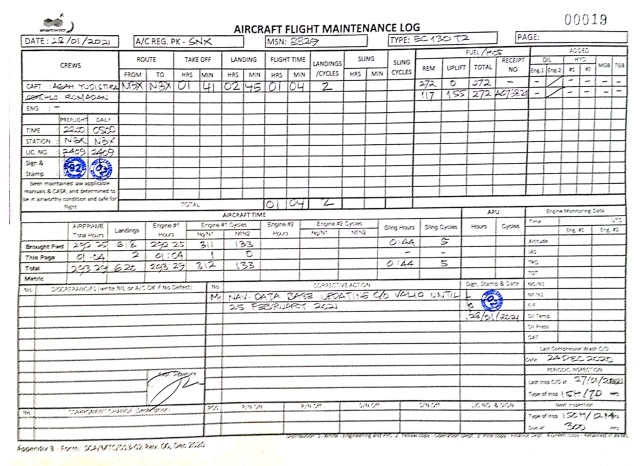 00019
AIRCRAFT FLIGHT MAINTENANCE LOG
DATE: 28/01/2021 A/C REG. PK - SNX MSN: 8829 TYPE: EC 130 T2 PAGE:
CREWS ROUTE TAKE OFF LANDING FLIGHT TIME LANDINGS /CYCLES SLING SLING CYCLES FUEL / HRS RECEIPT NO ADDED
OIL HYD MGB TGB
FROM TO HRS MIN HRS MIN HRS MIN HRS MIN REM UPLIFT TOTAL Eng.1 Eng.2 #1 #2
CAPT : AGAH YUDISTIRA NBX NBX 01 41 02 45 01 04 2 272 0 272 - - - -
ROMADAN 117 155 272 - - - -
ENG : -
PREFLIGHT DAILY
TIME 2200 0500
STATION NBX NBX
LIC. NO. 2409 2409
Sign &
Stamp
Been maintained iaw applicable
manuals & CASR, and determined to
be in airworthy condition and safe for
flight
TOTAL 01 04 2
AIRCRAFT TIME APU Engine Monitoring Data
AIRFRAME Total Hours Landings Engine #1 Hours Engine #1 Cycles Engine #2 Hours Engine #2 Cycles Sling Hours Sling Cycles Hours Cycles Time UTC
Ng/N1 Nf/N2 Ng/N1 Nf/N2 Eng. #1 Eng. #2
Brought Fwd 292 25 618 292 25 311 133 0:44 5 Altitude
This Page 01:04 2 01:04 1 0 - - IAS
Total 293 29 620 293 29 312 133 0:44 5 TRQ
Metric TOT
No DISCREPANCIES (write NIL or A/C OK if No Defect) No CORRECTIVE ACTION Sign, Stamp & Date NG/N1
M1 NAV. DATA BASE UPDATING C/O VALID UNTIL NF/N2
25 FEBRUARY 2021 F/F
28/01/2021 Oil Temp
Oil Press
OAT
Last Compressor Wash C/O
Date 24 DEC 2020
PERIODIC INSPECTION
Last Insp C/O at : 27/01/2021
Type of Insp 15H/7D Hrs
No COMPONENT CHANGE POS P/N ON P/N Off S/N Off S/N ON LIC NO. & SIGN Next Inspection
Type of Insp 150H/12M Hrs
Due at 300 Hrs
Distribution: 1. White - Engineering and PPC, 2. Yellow copy - Operation Dept. 3. Pink copy - Finance Dept. 4. Green copy - Retained in Aircraft
Appendix B - Form: DCA/MTC/013-02 Rev. 00, Dec 2020